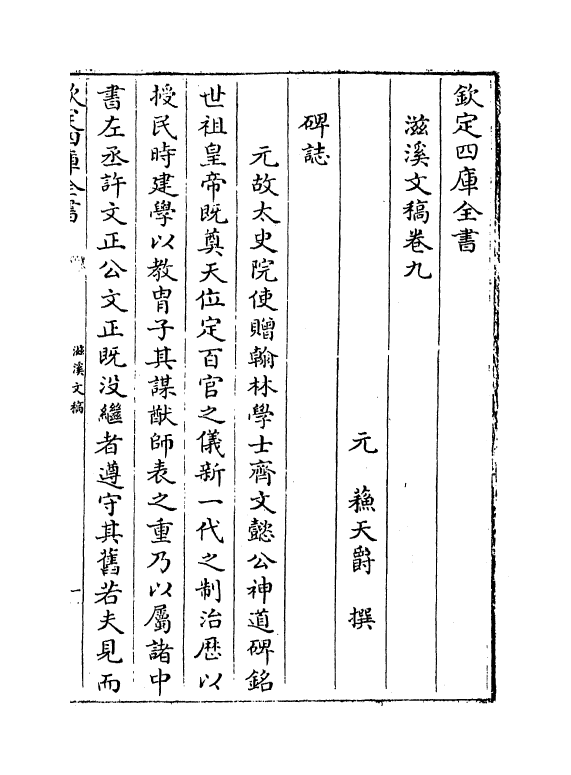 欽定四庫全書
滋溪文稿卷九
元 蘓天爵 撰
碑誌
元故太史院使贈翰林學士齊文懿公神道碑銘
世祖皇帝既奠天位定百官之儀新一代之制治厯以
授民時建學以教胄子其謀猷師表之重乃以屬諸中
書左丞許文正公文正既没繼者遵守其舊若夫見而
欽定四庫全書
滋溪文稿
一